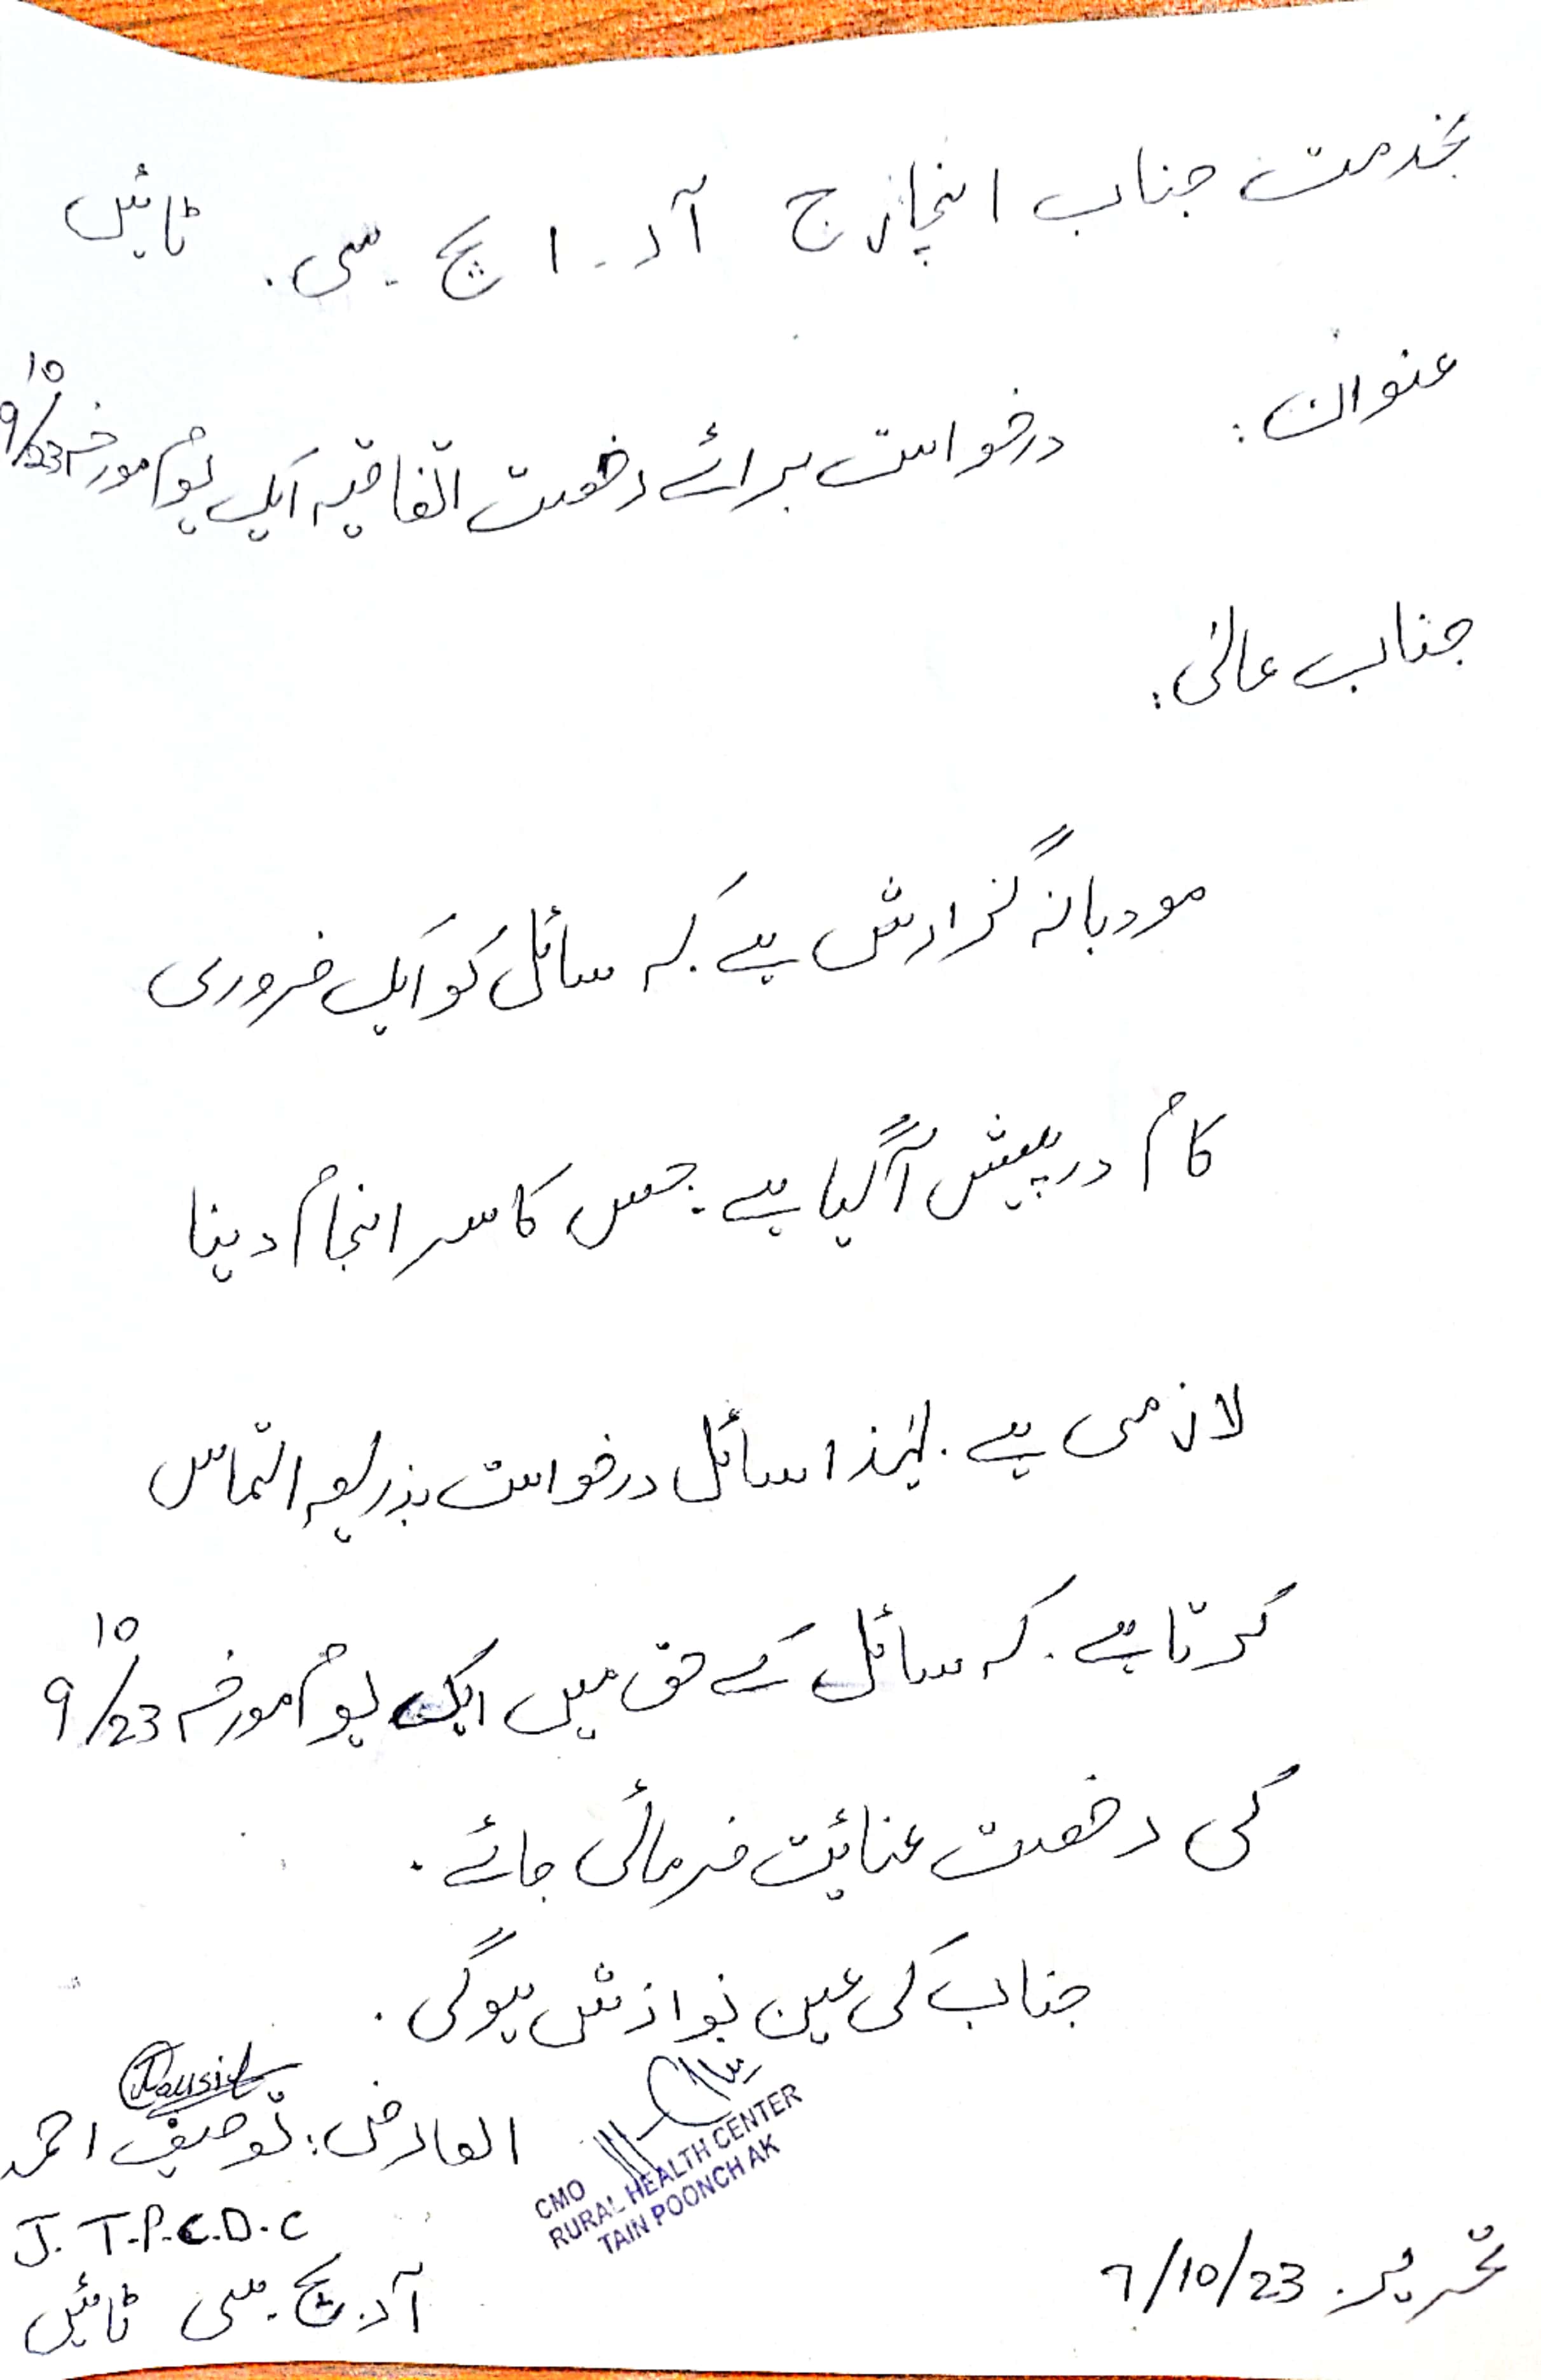 بخدمت جناب انچارج آر۔ ا چ ۔سی۔ ٹائیں
عنوان:
درخواست برائے رخصت اتفاقیہ ایک یوم مورخہ 9/10/23
جناب عالی:
مودبانہ گزارش ہے کہ سائل کو ایک ضروری
کام درپیش آگیا ہے۔ جس کا سر انجام دینا
لازمی ہے۔ لہذا سائل درخواست بذریعہ التماس
کرتا ہے۔ کہ سائل کے حق میں ایک یوم مورخہ 9/10/23
کی رخصت عنائیت فرمائی جائے۔
جناب کی عین نوازش ہوگی۔
Tausif
العارض: توصیف احمد
J. T.P.C.D.C
آر۔ چ۔ سی ٹائیں
CMO
RURAL HEALTH CENTER
TAIN POONCH AK
تحریر۔ 7/10/23